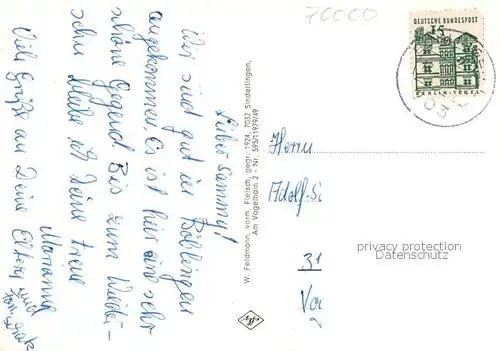 70000
DEUTSCHE BUNDESPOST
15
BERLIN-TEGEL
Liebe Sammy!
Wir sind gut in Böblingen
angekommen, Es ist hier eine sehr
schöne Gegend Bis zum Wieder-
sehn bleibe ich Deine treue
Marianne
Viele Grüße an Deine Eltern und
W. Feldmann, vorm. Fleisch, gegr. 1924, 7032 Sindelfingen,
Am Vogelhain 2 - Nr. 595/11979/49
Herrn
Adolf-Sc
31
Va
privacy protection
Datenschutz